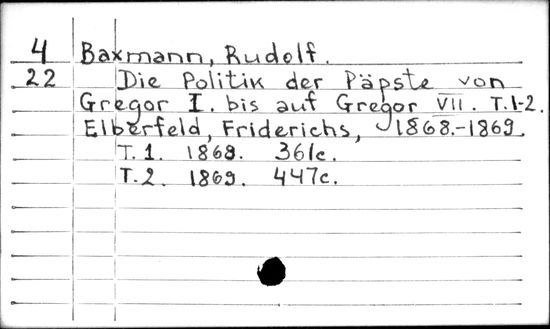 4 Baxmann, Rudolf.
22 Die Politik der Päpste von
Gregor I. bis auf Gregor VII. T.1-2.
Elberfeld, Friderichs, 1868.-1869.
T.1. 1868. 361c.
T.2. 1869. 447c.